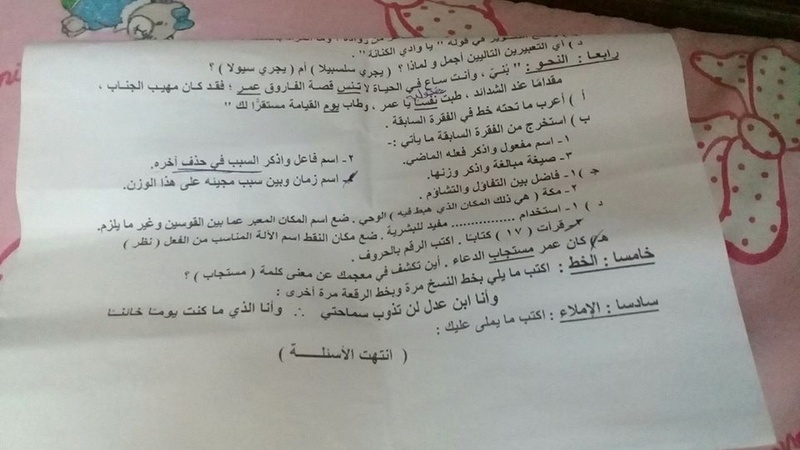 د ) أي التعبيرين التاليين أجمل و لماذا ؟ ( يجري سلسبيلا ) أم ( يجري سيولا ) ؟
رابعا : النحو : " بُنيّ ، وأنت ساع في الحياة لا تنس قصة الفاروق عمر ؛ فقد كان مهيب الجناب ،
مقدامًا عند الشدائد ، طبت نفسا يا عمر ، وطاب يوم القيامة مستقرًا لك "
أ ) أعرب ما تحته خط في الفقرة السابقة .
ب ) استخرج من الفقرة السابقة ما يأتي :-
١- اسم مفعول واذكر فعله الماضي. ٢- اسم فاعل واذكر السبب في حذف آخره.
٣- صيغة مبالغة واذكر وزنها. اسم زمان وبين سبب مجيئه على هذا الوزن.
جـ ) ١- فاضل بين التفاؤل والتشاؤم .
٢- مكة ( هي ذلك المكان الذي هبط فيه ) الوحي . ضع اسم المكان المعبر عما بين القوسين وغير ما يلزم.
د ) ١- استخدام ................ مفيد للبشرية . ضع مكان النقط اسم الآلة المناسب من الفعل ( نظر )
٢- قرأت ( ١٧ ) كتابًا . اكتب الرقم بالحروف .
هـ) كان عمر مستجاب الدعاء . أين تكشف في معجمك عن معنى كلمة ( مستجاب ) ؟
خامسا : الخط : اكتب ما يلي بخط النسخ مرة وبخط الرقعة مرة أخرى :
وأنا ابن عدل لن تذوب سماحتي ∴ وأنا الذي ما كنت يومنا خائنا
سادسا : الإملاء : اكتب ما يملى عليك :
( انتهت الأسئلة )